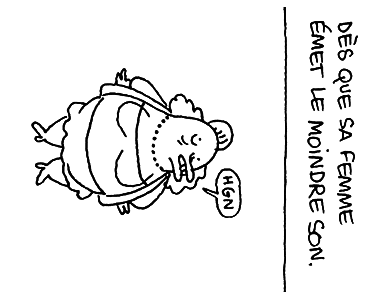 DÈS QUE SA FEMME
ÉMET LE MOINDRE SON.
HGN